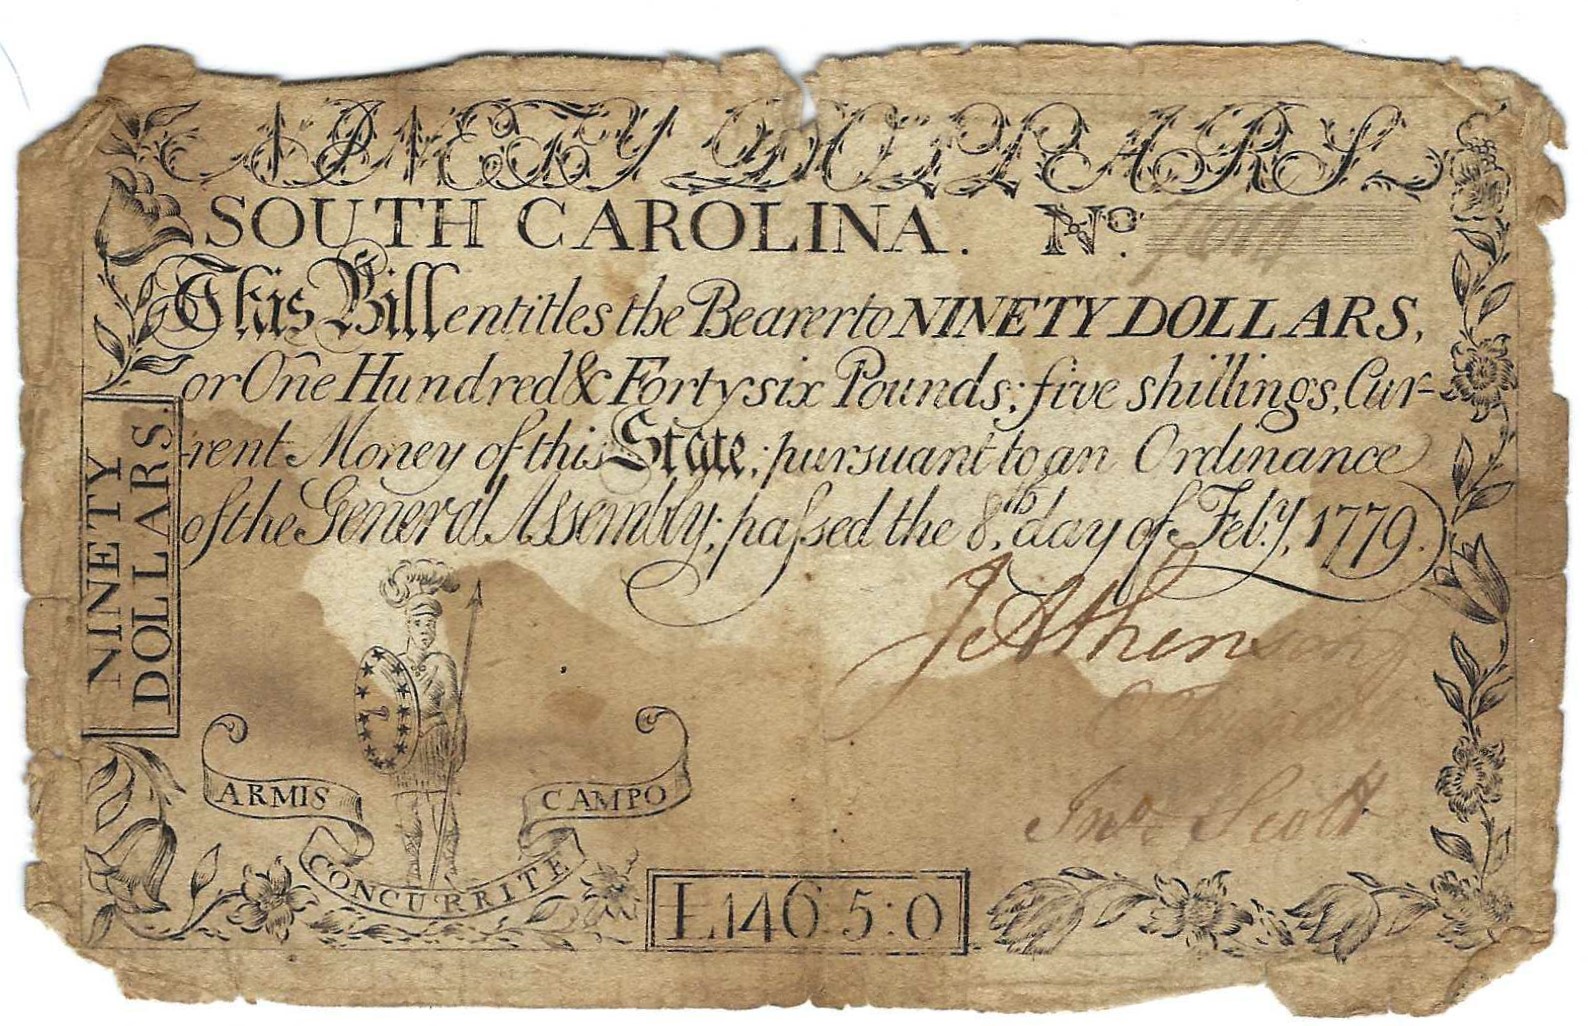 NINETY DOLLARS
SOUTH CAROLINA. No.
This Bill entitles the Bearer to NINETY DOLLARS,
or One Hundred & Forty six Pounds; five shillings, Cur-
rent Money of this State; pursuant to an Ordinance
of the General Assembly; passed the 8th. day of Feb.y, 1779.
NINETY
DOLLARS.
Jno. Scott
ARMIS CAMPO
CONCURRITE
£146:5:0